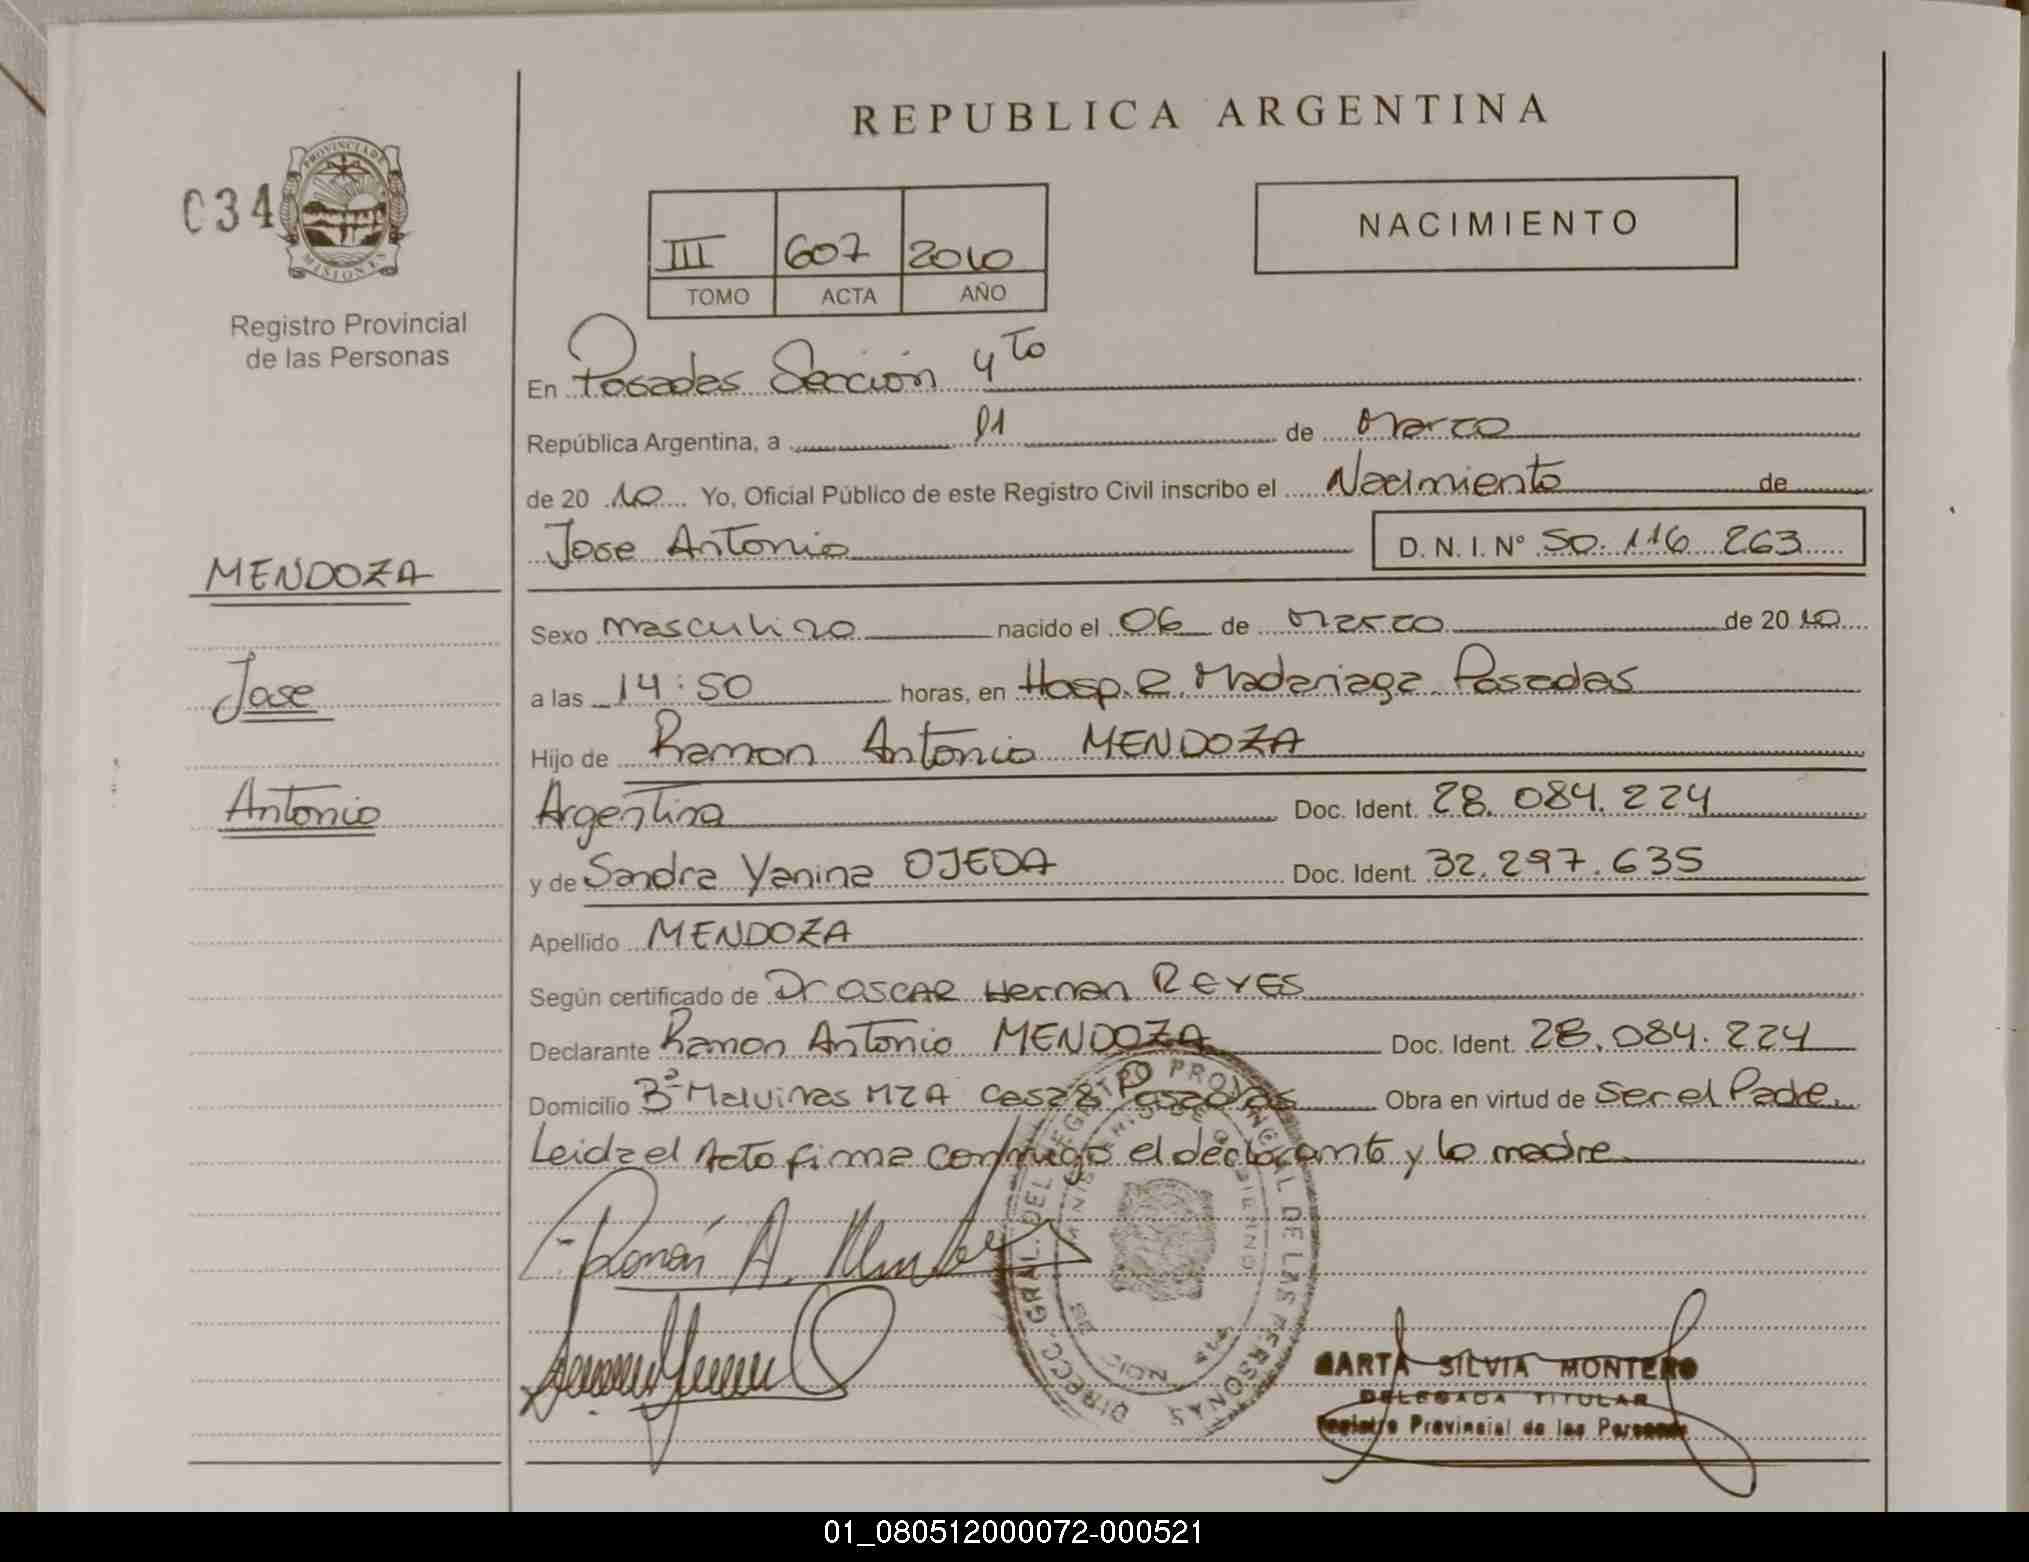 REPUBLICA ARGENTINA
034
PROVINCIA DE MISIONES
Registro Provincial
de las Personas
III 607 2010
TOMO ACTA AÑO
NACIMIENTO
En Posadas Sección 4to
República Argentina, a 11 de Marzo
de 20 10 Yo, Oficial Público de este Registro Civil inscribo el Nacimiento de
Jose Antonio D.N.I. Nº 50.116 263
MENDOZA
Jose
Antonio
Sexo masculino nacido el 06 de Marzo de 20 10
a las 14:50 horas, en Hosp. R. Madariaga Posadas
Hijo de Ramon Antonio MENDOZA
Argentina Doc. Ident. 28.084.224
y de Sandra Yanina OJEDA Doc. Ident. 32.297.635
Apellido MENDOZA
Según certificado de Dr OSCAR Hernan REYES
Declarante Ramon Antonio MENDOZA Doc. Ident. 28.084.224
Domicilio Bº Malvinas MZA Casa 8 Posadas Obra en virtud de Ser el Padre.
Leida el Acta firma conmigo el declarante y la madre.
Ramón A.
DIRECC. GRAL. DEL REGISTRO PROVINCIAL DE LAS PERSONAS
MINISTERIO DE GOBIERNO
MARTA SILVIA MONTERO
DELEGADA TITULAR
Registro Provincial de las Personas
01_080512000072-000521